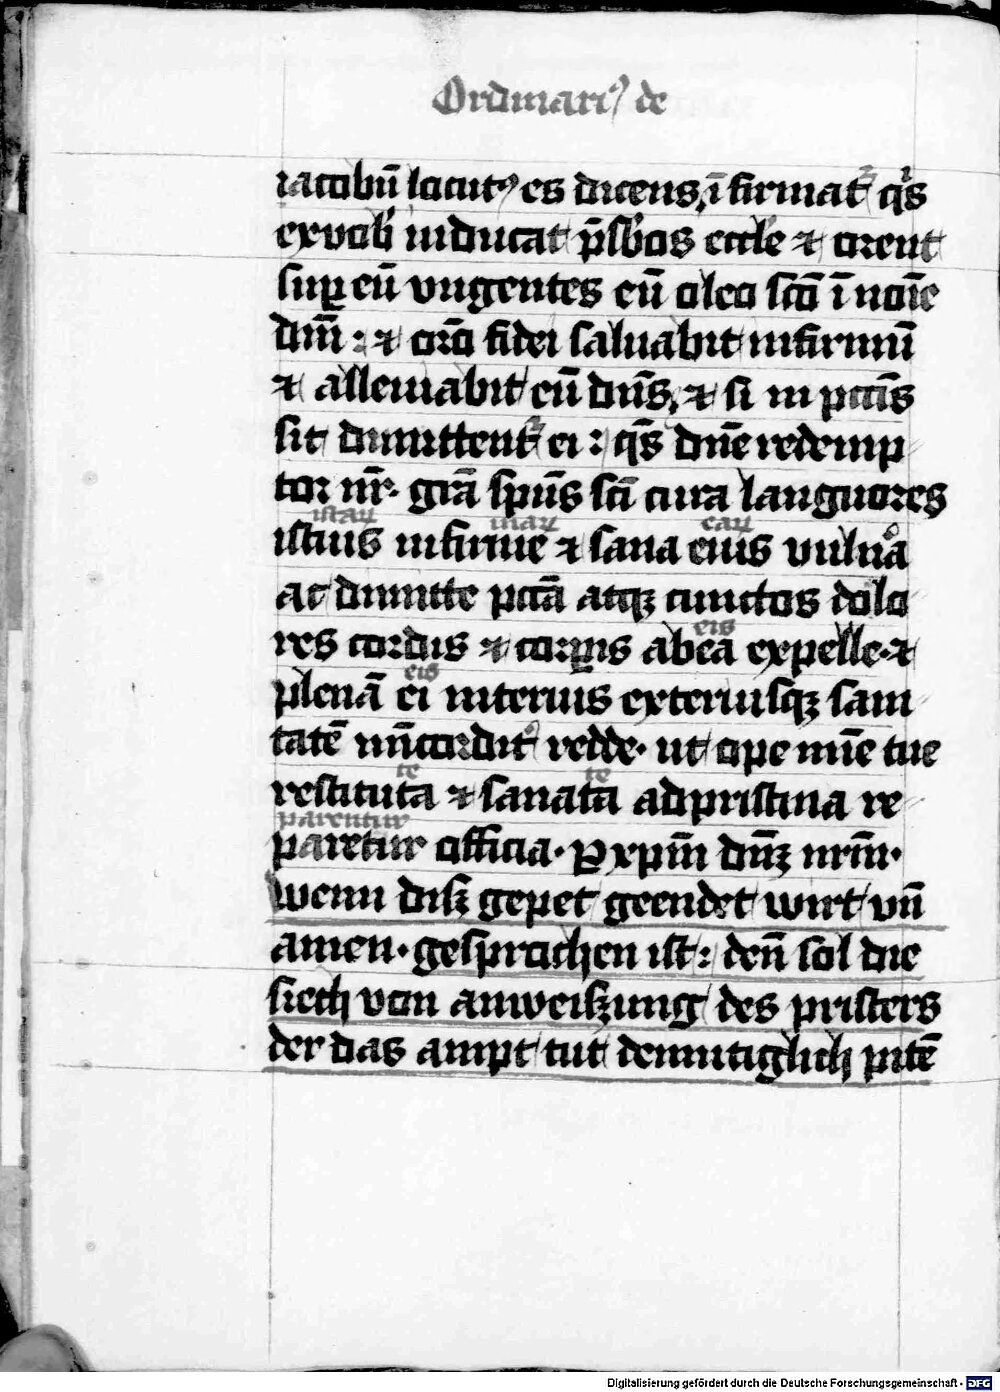 Ordinariꝰ de
iacobū locutꝰ es dicens, īfirmat᷑ qͥs
ex vob̄ inducat p̄sb̄os eccl̄e ⁊ orent
suꝑ eū vngentes eū oleo sc̄o ī noīe
dn̄i : ⁊ or̄o fidei saluabit infirmū
⁊ alleuiabit eū dn̄s, ⁊ si in pctīs
sit dimittent᷑ ei : q̄s dn̄e redemp
tor nr̄. gr̄a sp̄us sc̄i cura languores
istaꝝ inaꝝ eaꝝ
istius infirme ⁊ sana eius vulnͦa
ac dimitte pctā atqꝫ cunctos dolo
eis
res cordis ⁊ corꝑis ab ea expelle. ⁊
eis
plenā ei interius exteriusqꝫ sani
tatē mīcorditꝰ redde. ut ope mīe tue
te te
restituta ⁊ sanata ad pristina re
parentur
paretur officia. Ꝑ xp̄m dn̄ꝫ nr̄m.
wenn disz gepet geendet wirt vn̄
amen. gesprochen ist : den̄ sol die
siech von anweiszung des pristers
der das ampt tut demutiglich pitē
Digitalisierung gefördert durch die Deutsche Forschungsgemeinschaft - DFG